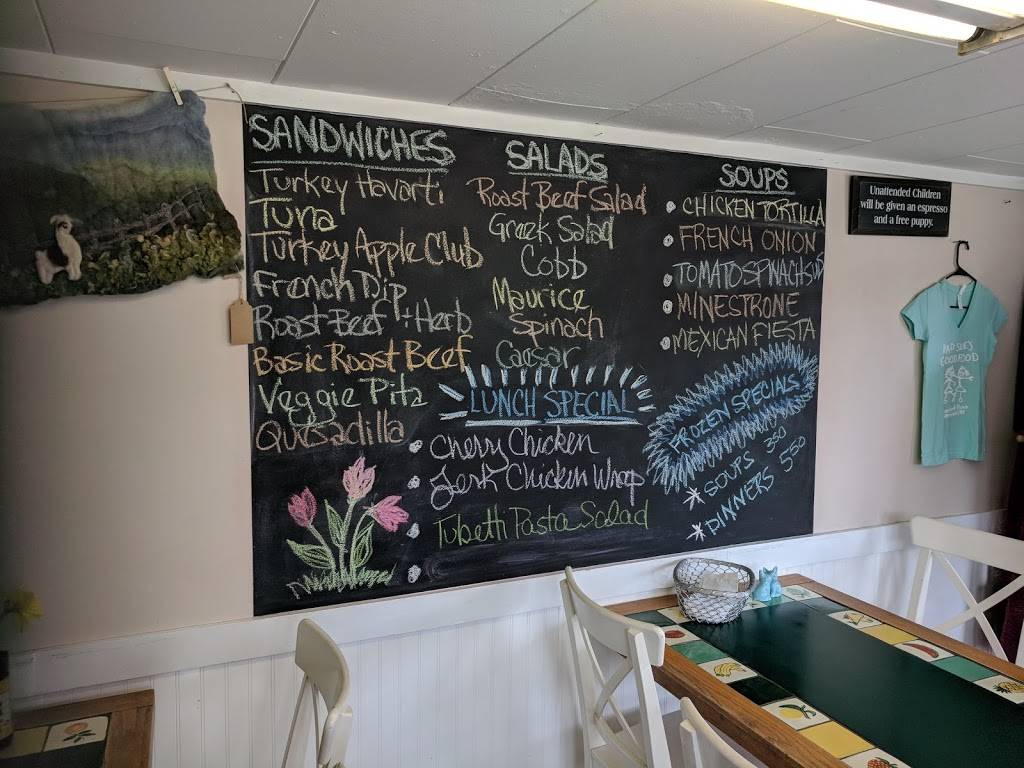 SANDWICHES
Turkey Havarti
Tuna
Turkey Apple Club
French Dip
Roast Beef + Herb
Basic Roast Beef
Veggie Pita
Quesadilla
SALADS
Roast Beef Salad
Greek Salad
Cobb
Maurice
Spinach
Caesar
LUNCH SPECIAL
Cherry Chicken
Jerk Chicken Wrap
Tubetti Pasta Salad
SOUPS
CHICKEN TORTILLA
FRENCH ONION
TOMATO SPINACH
MINESTRONE
MEXICAN FIESTA
FROZEN SPECIALS
SOUPS 350
DINNERS 550
Unattended Children
will be given an espresso
and a free puppy.
GOOD FOOD